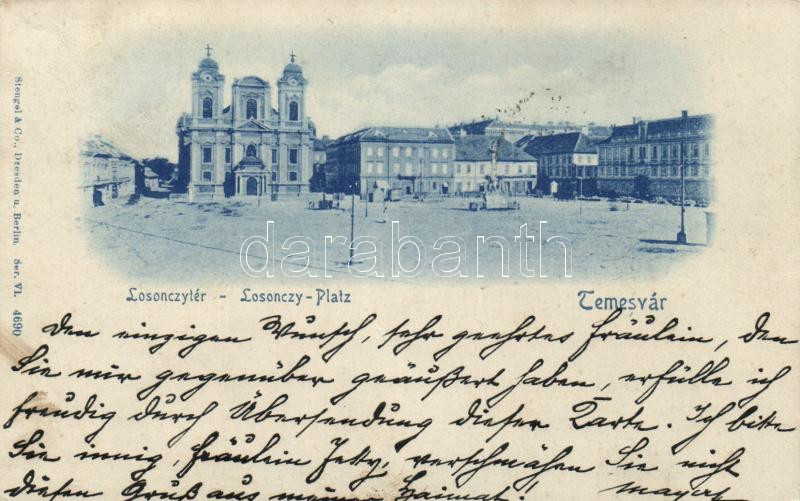 Stengel & Co., Dresden u. Berlin. Ser. VI. 4690
darabanth
Losonczytér - Losonczy-Platz
Temesvár
Den einzigen Wunsch, sehr geehrtes Fräulein, den
Sie mir gegenüber geäußert haben, erfülle ich
freudig durch Übersendung dieser Karte. Ich bitte
Sie innig, Fräulein Jetty, verschmähen Sie nicht
diesen Gruß aus meiner Heimat!